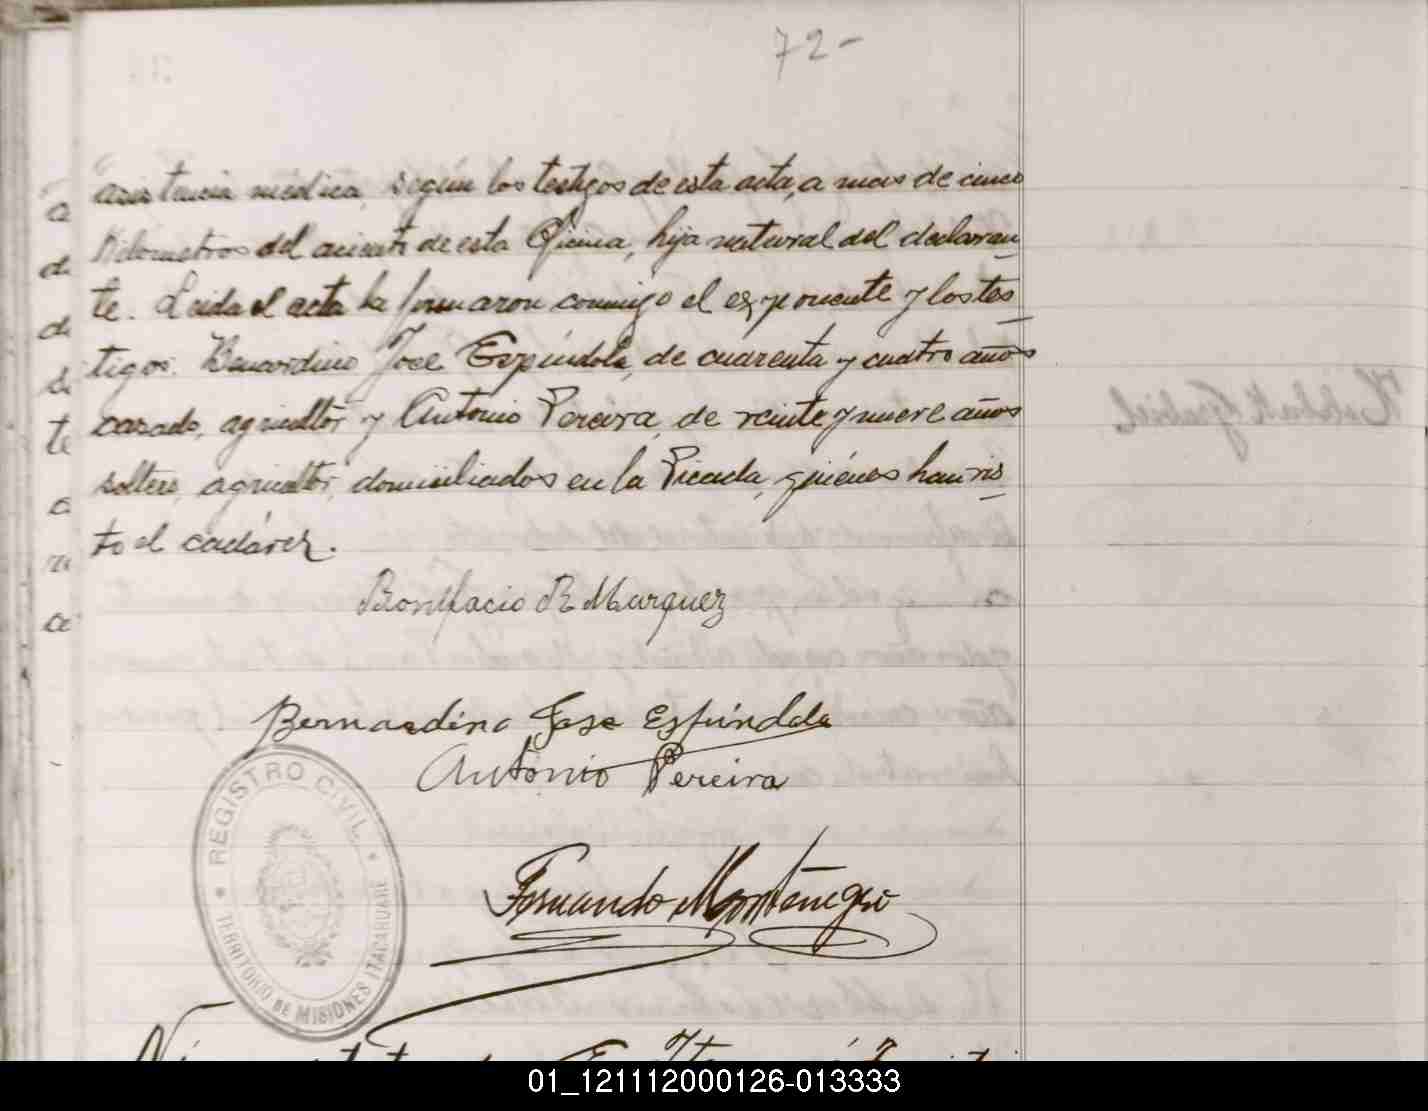 72-
asistencia médica, según los testigos de esta acta, a mas de cinco
kilometros del asiento de esta Oficina, hija natural del declaran
te. Leida el acta la firmaron conmigo el exponente y los tes
tigos: Bernardino José Espíndola, de cuarenta y cuatro años
casado, agricultor y Antonio Pereira, de veinte y nueve años
soltero, agricultor, domiciliados en la Picada, quiénes han vis
to el cadáver.
Bonifacio R Marquez
Bernardino Jose Espíndola
Antonio Pereira
Fernando Montenegro
REGISTRO CIVIL
TERRITORIO DE MISIONES ITACARUARE
01_121112000126-013333